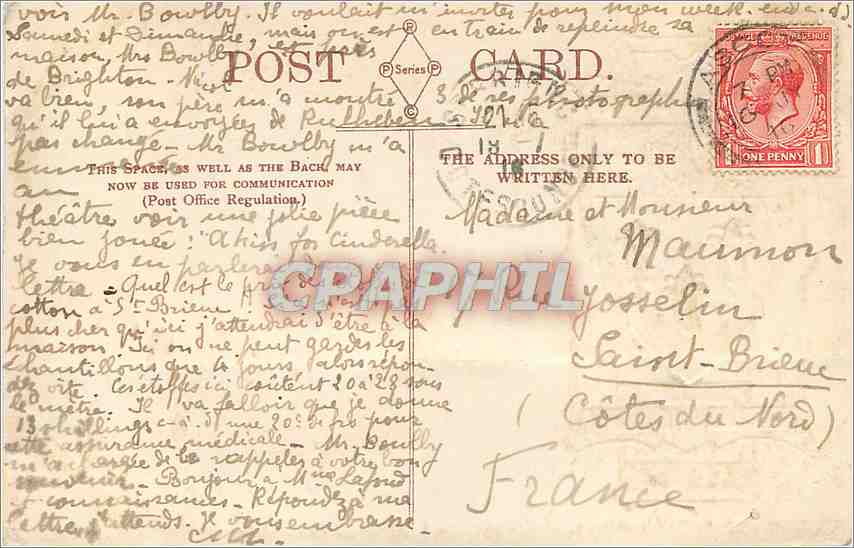 voir Mr. Bowlby. Il voulait m'inviter pour mon week-end c.à.d.
Samedi et Dimanche, mais on est en train de repeindre sa
maison, Mrs Bowlby est près
de Brighton - Nicol
va bien, son père m'a montré 3 de ses photographies
qu'il lui a envoyées de Ruhleben. Il n'a
pas changé - Mr Bowlby m'a
emmenée
au
théâtre voir une jolie pièce
bien jouée : "A kiss for Cinderella
Je vous en parlerai
lettre - Quel est le prix des
cotton à St Brieuc
plus cher qu'ici j'attendrai d'être à la
maison. Ici on ne peut garder les
échantillons que 4 jours, alors répon-
dez vite. Ces étoffes ici coûtent 20 à 28 sous
le mètre. Il va falloir que je donne
13 shillings c-à-d une 20e de frs pour
cette assurance médicale - Mr. Bowlby
m'a chargée de le rappeler à votre bon
souvenir - Bonjour à Mme Lafond
et connaissances - Répondez à ma
lettre j'attends. Je vous embrasse -
POST CARD.
P Series P
C
THIS SPACE, AS WELL AS THE BACK, MAY
NOW BE USED FOR COMMUNICATION
(Post Office Regulation.)
THE ADDRESS ONLY TO BE
WRITTEN HERE.
Madame et Monsieur
Maumon
Rue Josselin
Saint-Brieuc
(Côtes du Nord)
France
POSTAGE REVENUE
ONE PENNY 1
7 PM
21
18 - 7
16
CPAPHIL